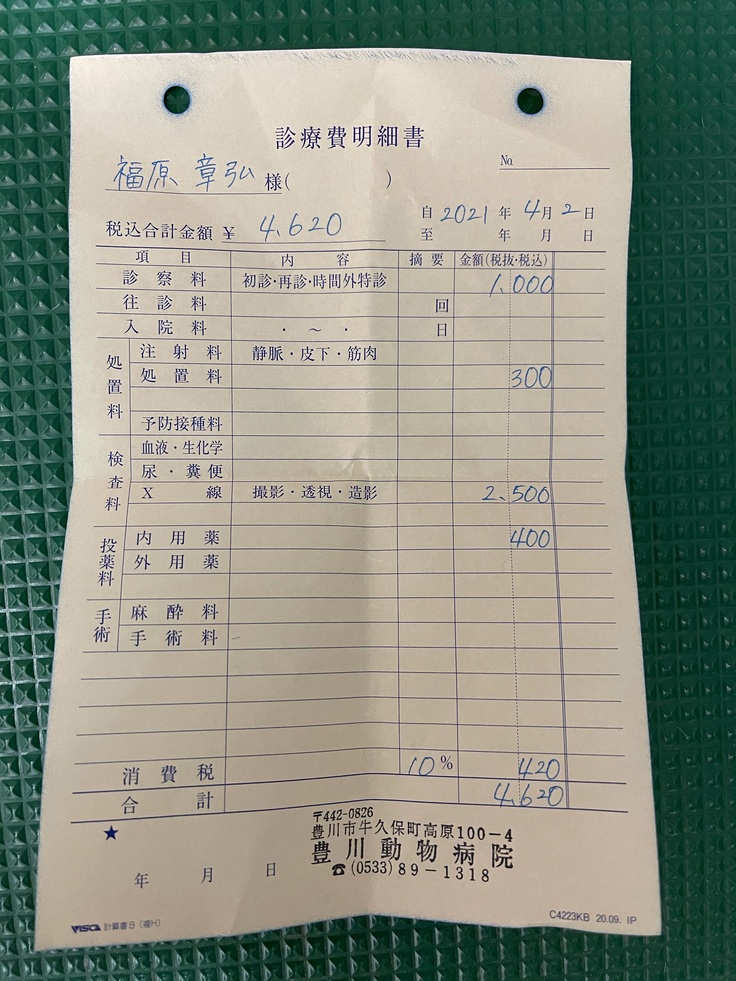 診療費明細書
No.
福原 章弘 様( )
自 2021 年 4月 2日
税込合計金額 ¥ 4,620
至 年 月 日
項目 内容 摘要 金額(税抜・税込)
診察料 初診・再診・時間外特診 1,000
往診料 回
入院料 ・ ～ ・ 日
処置料
注射料 静脈・皮下・筋肉
処置料 300
予防接種料
検査料
血液・生化学
尿・糞便
X線 撮影・透視・造影 2,500
投薬料
内用薬 400
外用薬
手術
麻酔料
手術料
消費税 10% 420
合計 4,620
★
〒442-0826
豊川市牛久保町高原100-4
豊川動物病院
☎(0533)89-1318
年 月 日
VISCA 計算書B(複H)
C4223KB 20.09. IP